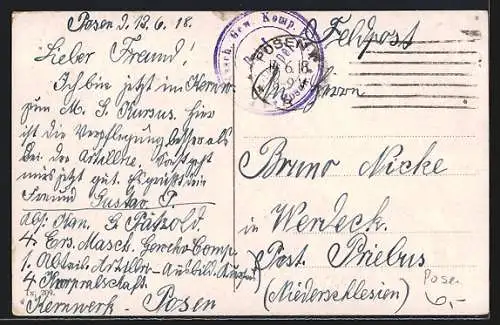 Posen d. 13.6.18.
Lieber Freund!
Ich bin jetzt im Kernw.
zum M. G. Kursus. hier
ist die Verpflegung besser als
bei der Artillrie. Sonst geht
mirs jetzt gut. Es grüßt dein
Freund Gustav P.
Abs. Kan. G. Pätzold.
4. Ers. Masch. Gewehr-Comp.
1. Abteil. Artillrie-Ausbild.
4 Korpralschaft.
Kernwerk - Posen
Masch. Gew. Komp.
POSEN
6.18.
Feldpost
Herrn
Bruno Nicke
in Werdeck.
Post. Priebus
(Niederschlesien)
Pose.
6,-